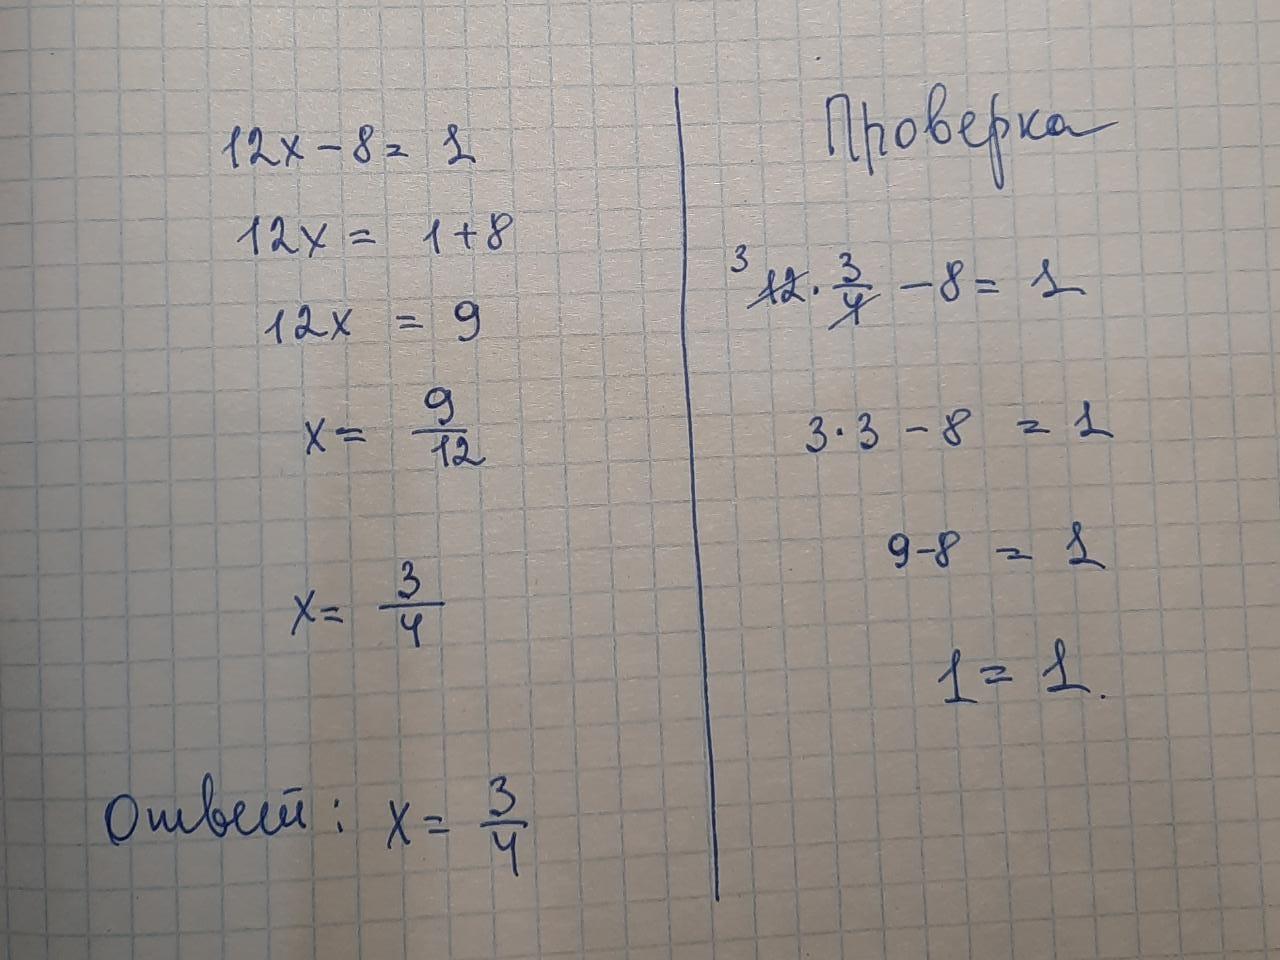 12x - 8 = 1
12x = 1 + 8
12x = 9
x = 9/12
x = 3/4
Ответ: x = 3/4
Проверка
3 12 · 3/4 - 8 = 1
3 · 3 - 8 = 1
9 - 8 = 1
1 = 1.